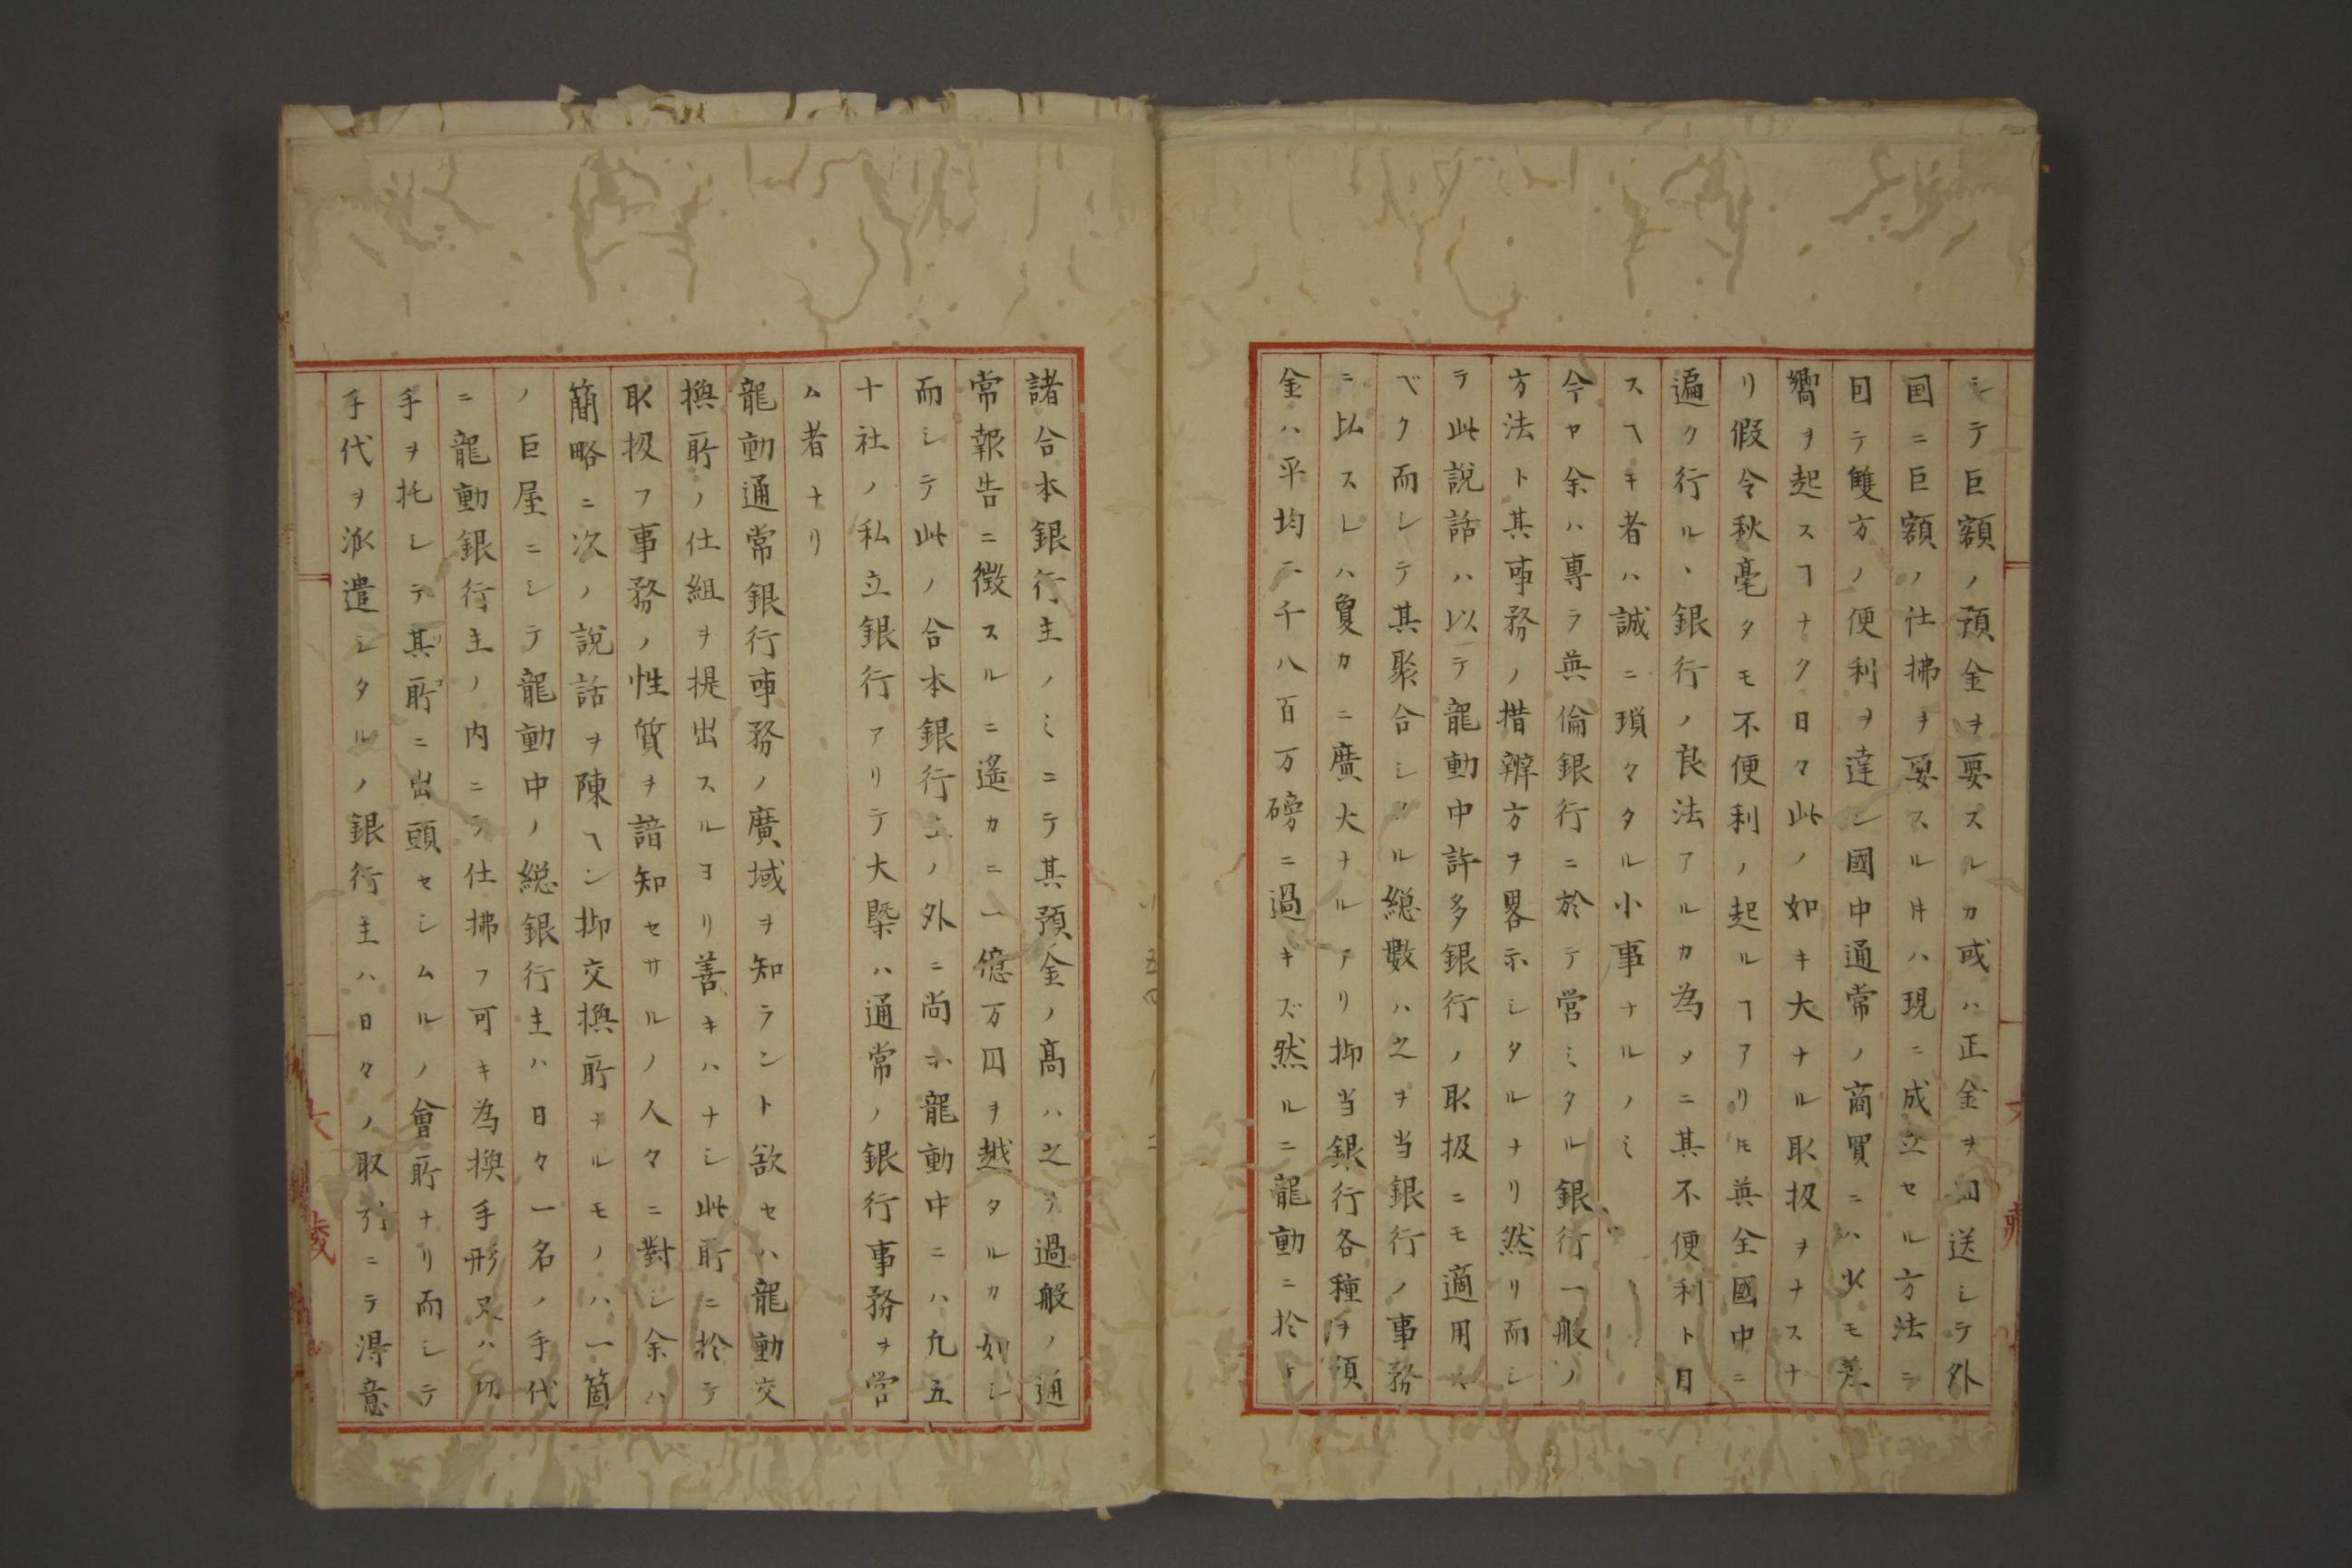 シテ巨額ノ預金ヲ要スルカ或ハ正金ヲ回送シテ外
国ニ巨額ノ仕拂ヲ要スル𪜈ハ現ニ成立セル方法ニ
因テ雙方ノ便利ヲ達シ國中通常ノ商買ニハ少モ差
響ヲ起スヿナク日々此ノ如キ大ナル取扱ヲナスナ
リ假令秋毫タモ不便利ノ起ルヿアリ𪜈英全國中ニ
遍ク行ル、銀行ノ良法アルカ為メニ其不便利ト目
スヘキ者ハ誠ニ瑣々タル小事ナルノミ
今ヤ余ハ専ラ英倫銀行ニ於テ営ミタル銀行一般ノ
方法ト其事務ノ措辨方ヲ畧示シタルナリ然リ而シ
テ此説話ハ以テ龍動中許多銀行ノ取扱ニモ適用ス
ベク而シテ其聚合シタル総數ハ之ヲ当銀行ノ事務
ニ比スレハ敻カニ廣大ナルアリ抑当銀行各種ヲ預
金ハ平均二千八百万磅ニ過キズ然ルニ龍動ニ於ケ
諸合本銀行主ノミニテ其預金ノ髙ハ之ヲ過般ノ通
常報告ニ徴スルニ遙カニ一億万円ヲ越タルカ如シ
而シテ此ノ合本銀行ニノ外ニ尚ホ龍動中ニハ九五
十社ノ私立銀行アリテ大槩ハ通常ノ銀行事務ヲ営
ム者ナリ
龍動通常銀行事務ノ廣域ヲ知ラント欲セハ龍動交
換所ノ仕組ヲ提出スルヨリ善キハナシ此所ニ於テ
取扱フ事務ノ性質ヲ諳知セサルノ人々ニ對シ余ハ
簡略ニ次ノ説話ヲ陳ヘン抑交換所ナルモノハ一箇
ノ巨屋ニシテ龍動中ノ総銀行主ハ日々一名ノ手代
ニ龍動銀行主ノ内ニテ仕拂フ可キ為換手形又ハ切
手ヲ托シテ其所ニ出頭セシムルノ會所ナリ而シテ
手代ヲ派遣シタルノ銀行主ハ日々ノ取引ニテ得意